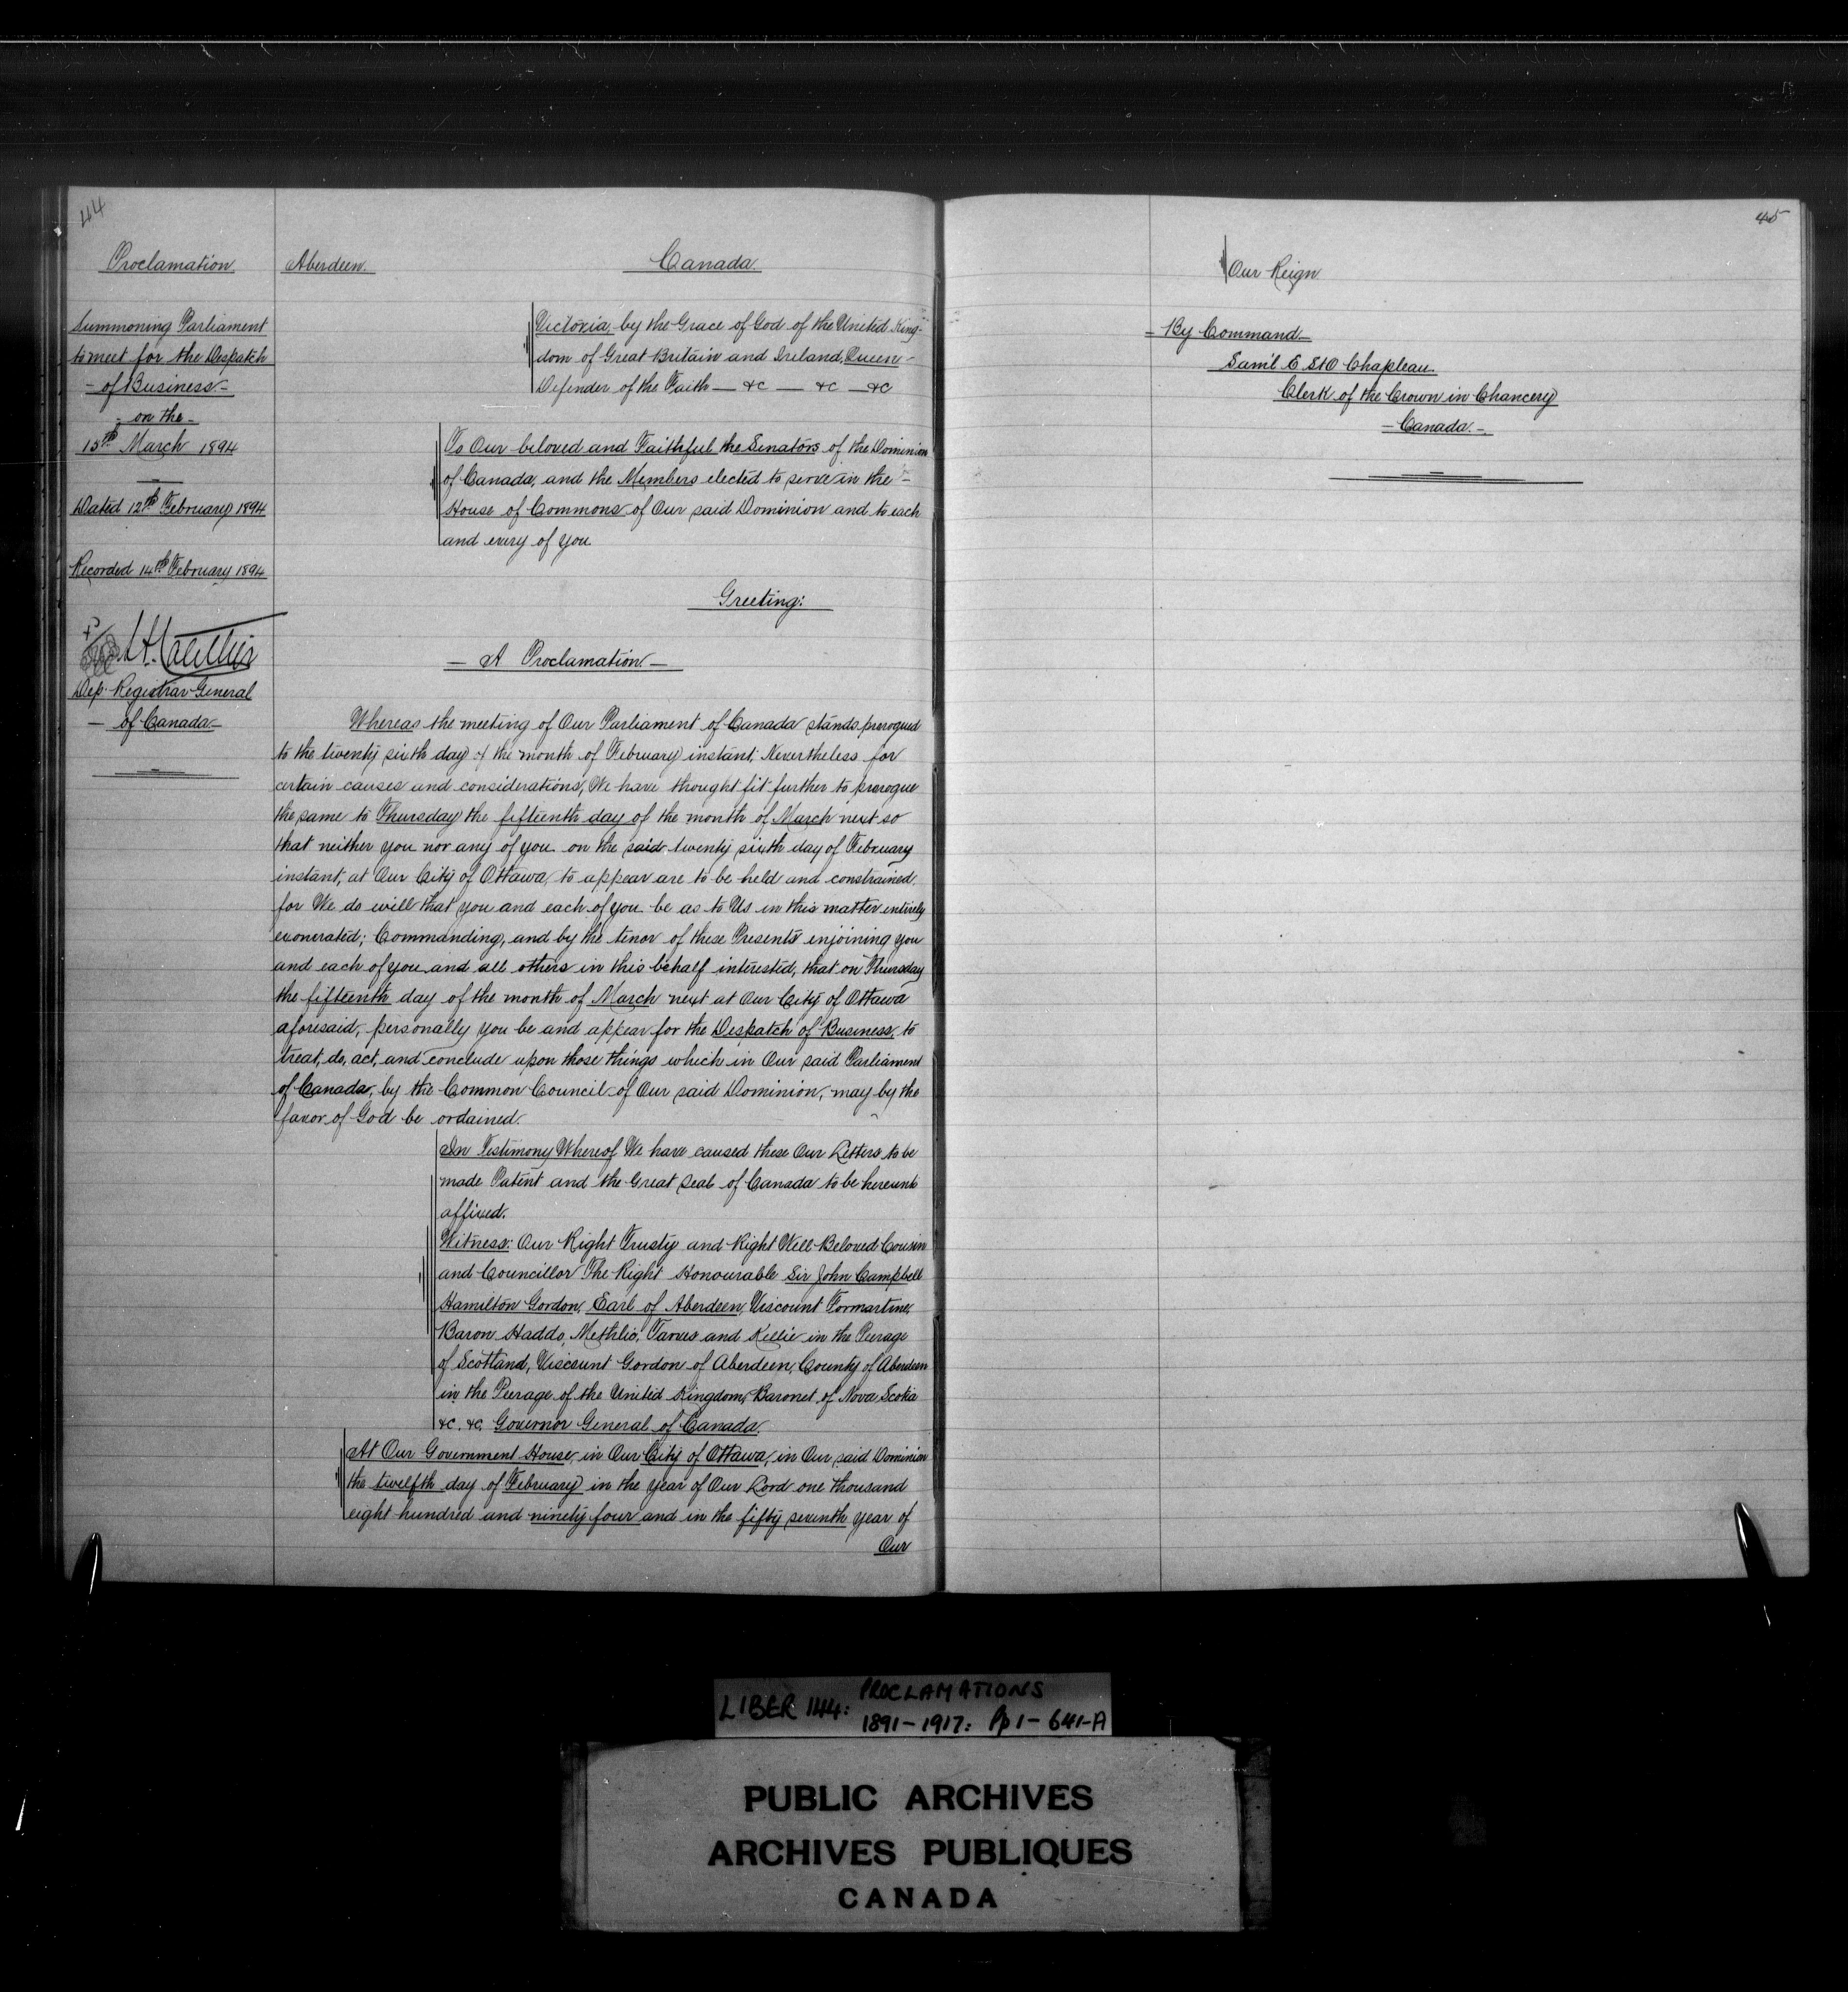 44
Proclamation
Summoning Parliament
to meet for the Despatch
- of Business -
- on the -
15th March 1894
Dated 12th February 1894
Recorded 14th February 1894
Dep. Registrar General
- of Canada -
Aberdeen.
Canada.
Victoria, by the Grace of God of the United King-
dom of Great Britain and Ireland, Queen -
Defender of the Faith — &c — &c — &c
To Our beloved and Faithful the Senators of the Dominion
of Canada, and the Members elected to serve in the -
House of Commons of Our said Dominion and to each
and every of you
Greeting:
— A Proclamation —
Whereas the meeting of Our Parliament of Canada stands prorogued
to the twenty sixth day of the month of February instant; Nevertheless for
certain causes and considerations, We have thought fit further to prorogue
the same to Thursday the fifteenth day of the month of March next so
that neither you nor any of you on the said twenty sixth day of February
instant, at Our City of Ottawa, to appear are to be held and constrained,
for We do will that you and each of you be as to Us in this matter entirely
exonerated; Commanding, and by the tenor of these Presents enjoining you
and each of you and all others in this behalf interested, that on Thursday
the fifteenth day of the month of March next at Our City of Ottawa
aforesaid, personally you be and appear for the Despatch of Business, to
treat, do, act, and conclude upon those things which in Our said Parliament
of Canada, by the Common Council of Our said Dominion, may by the
favor of God be ordained.
In Testimony Whereof We have caused these Our Letters to be
made Patent and the Great Seal of Canada to be hereunto
affixed.
Witness: Our Right Trusty and Right Well-Beloved Cousin
and Councillor The Right Honourable Sir John Campbell
Hamilton Gordon, Earl of Aberdeen, Viscount Formartine,
Baron Haddo, Methlic, Tarves and Kellie in the Peerage
of Scotland, Viscount Gordon of Aberdeen, County of Aberdeen
in the Peerage of the United Kingdom, Baronet of Nova Scotia
&c. &c. Governor General of Canada.
At Our Government House, in Our City of Ottawa, in Our said Dominion
the twelfth day of February in the year of Our Lord one thousand
eight hundred and ninety four and in the fifty seventh year of
Our
45
Our Reign
- By Command -
Saml E St O Chapleau
Clerk of the Crown in Chancery
- Canada. -
LIBER 144: PROCLAMATIONS
1891-1917: Pp 1-641-A
PUBLIC ARCHIVES
ARCHIVES PUBLIQUES
CANADA